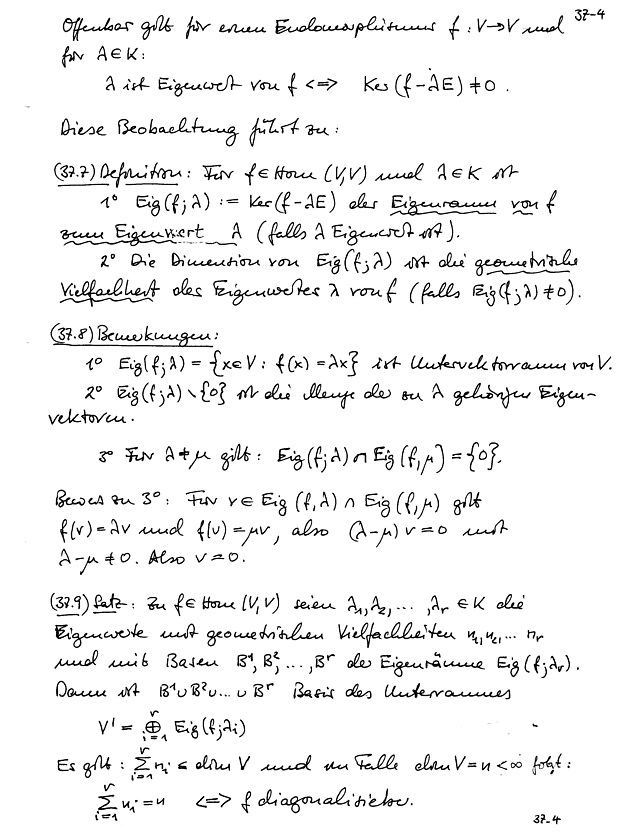 37-4
Offenbar gilt für einen Endomorphismus f : V→V und
für λ∈K:
λ ist Eigenwert von f <=> Ker (f-λE) ≠ 0 .
Diese Beobachtung führt zu :
(37.7) Definition : Für f∈Hom (V,V) und λ∈K ist
1° Eig (f;λ) := Ker (f-λE) der Eigenraum von f
zum Eigenwert λ (falls λ Eigenwert ist).
2° Die Dimension von Eig(f;λ) ist die geometrische
Vielfachheit des Eigenwertes λ von f (falls Eig(f;λ) ≠ 0).
(37.8) Bemerkungen :
1° Eig(f;λ) = {x∈V : f(x) = λx} ist Untervektorraum von V.
2° Eig(f;λ) \ {0} ist die Menge der zu λ gehörigen Eigen-
vektoren.
3° Für λ ≠ μ gilt : Eig(f;λ) ∩ Eig (f,μ) = {0}.
Beweis zu 3° : Für v ∈ Eig (f,λ) ∩ Eig (f,μ) gilt
f(v) = λv und f(v) = μv, also (λ-μ) v = 0 mit
λ-μ ≠ 0. Also v = 0.
(37.9) Satz : Zu f∈Hom (V,V) seien λ₁,λ₂, ... ,λr ∈ K die
Eigenwerte mit geometrischen Vielfachheiten n₁,n₂,... nr
und mit Basen B¹, B², ..., Bʳ der Eigenräume Eig (f;λr).
Dann ist B¹∪B²∪...∪Bʳ Basis des Unterraumes
V' = ⊕ᵢ₌₁ʳ Eig (f;λi)
Es gilt : Σᵢ₌₁ʳ nᵢ ≤ dim V und im Falle dim V = n < ∞ folgt :
Σᵢ₌₁ʳ nᵢ = n <=> f diagonalisierbar.
37-4